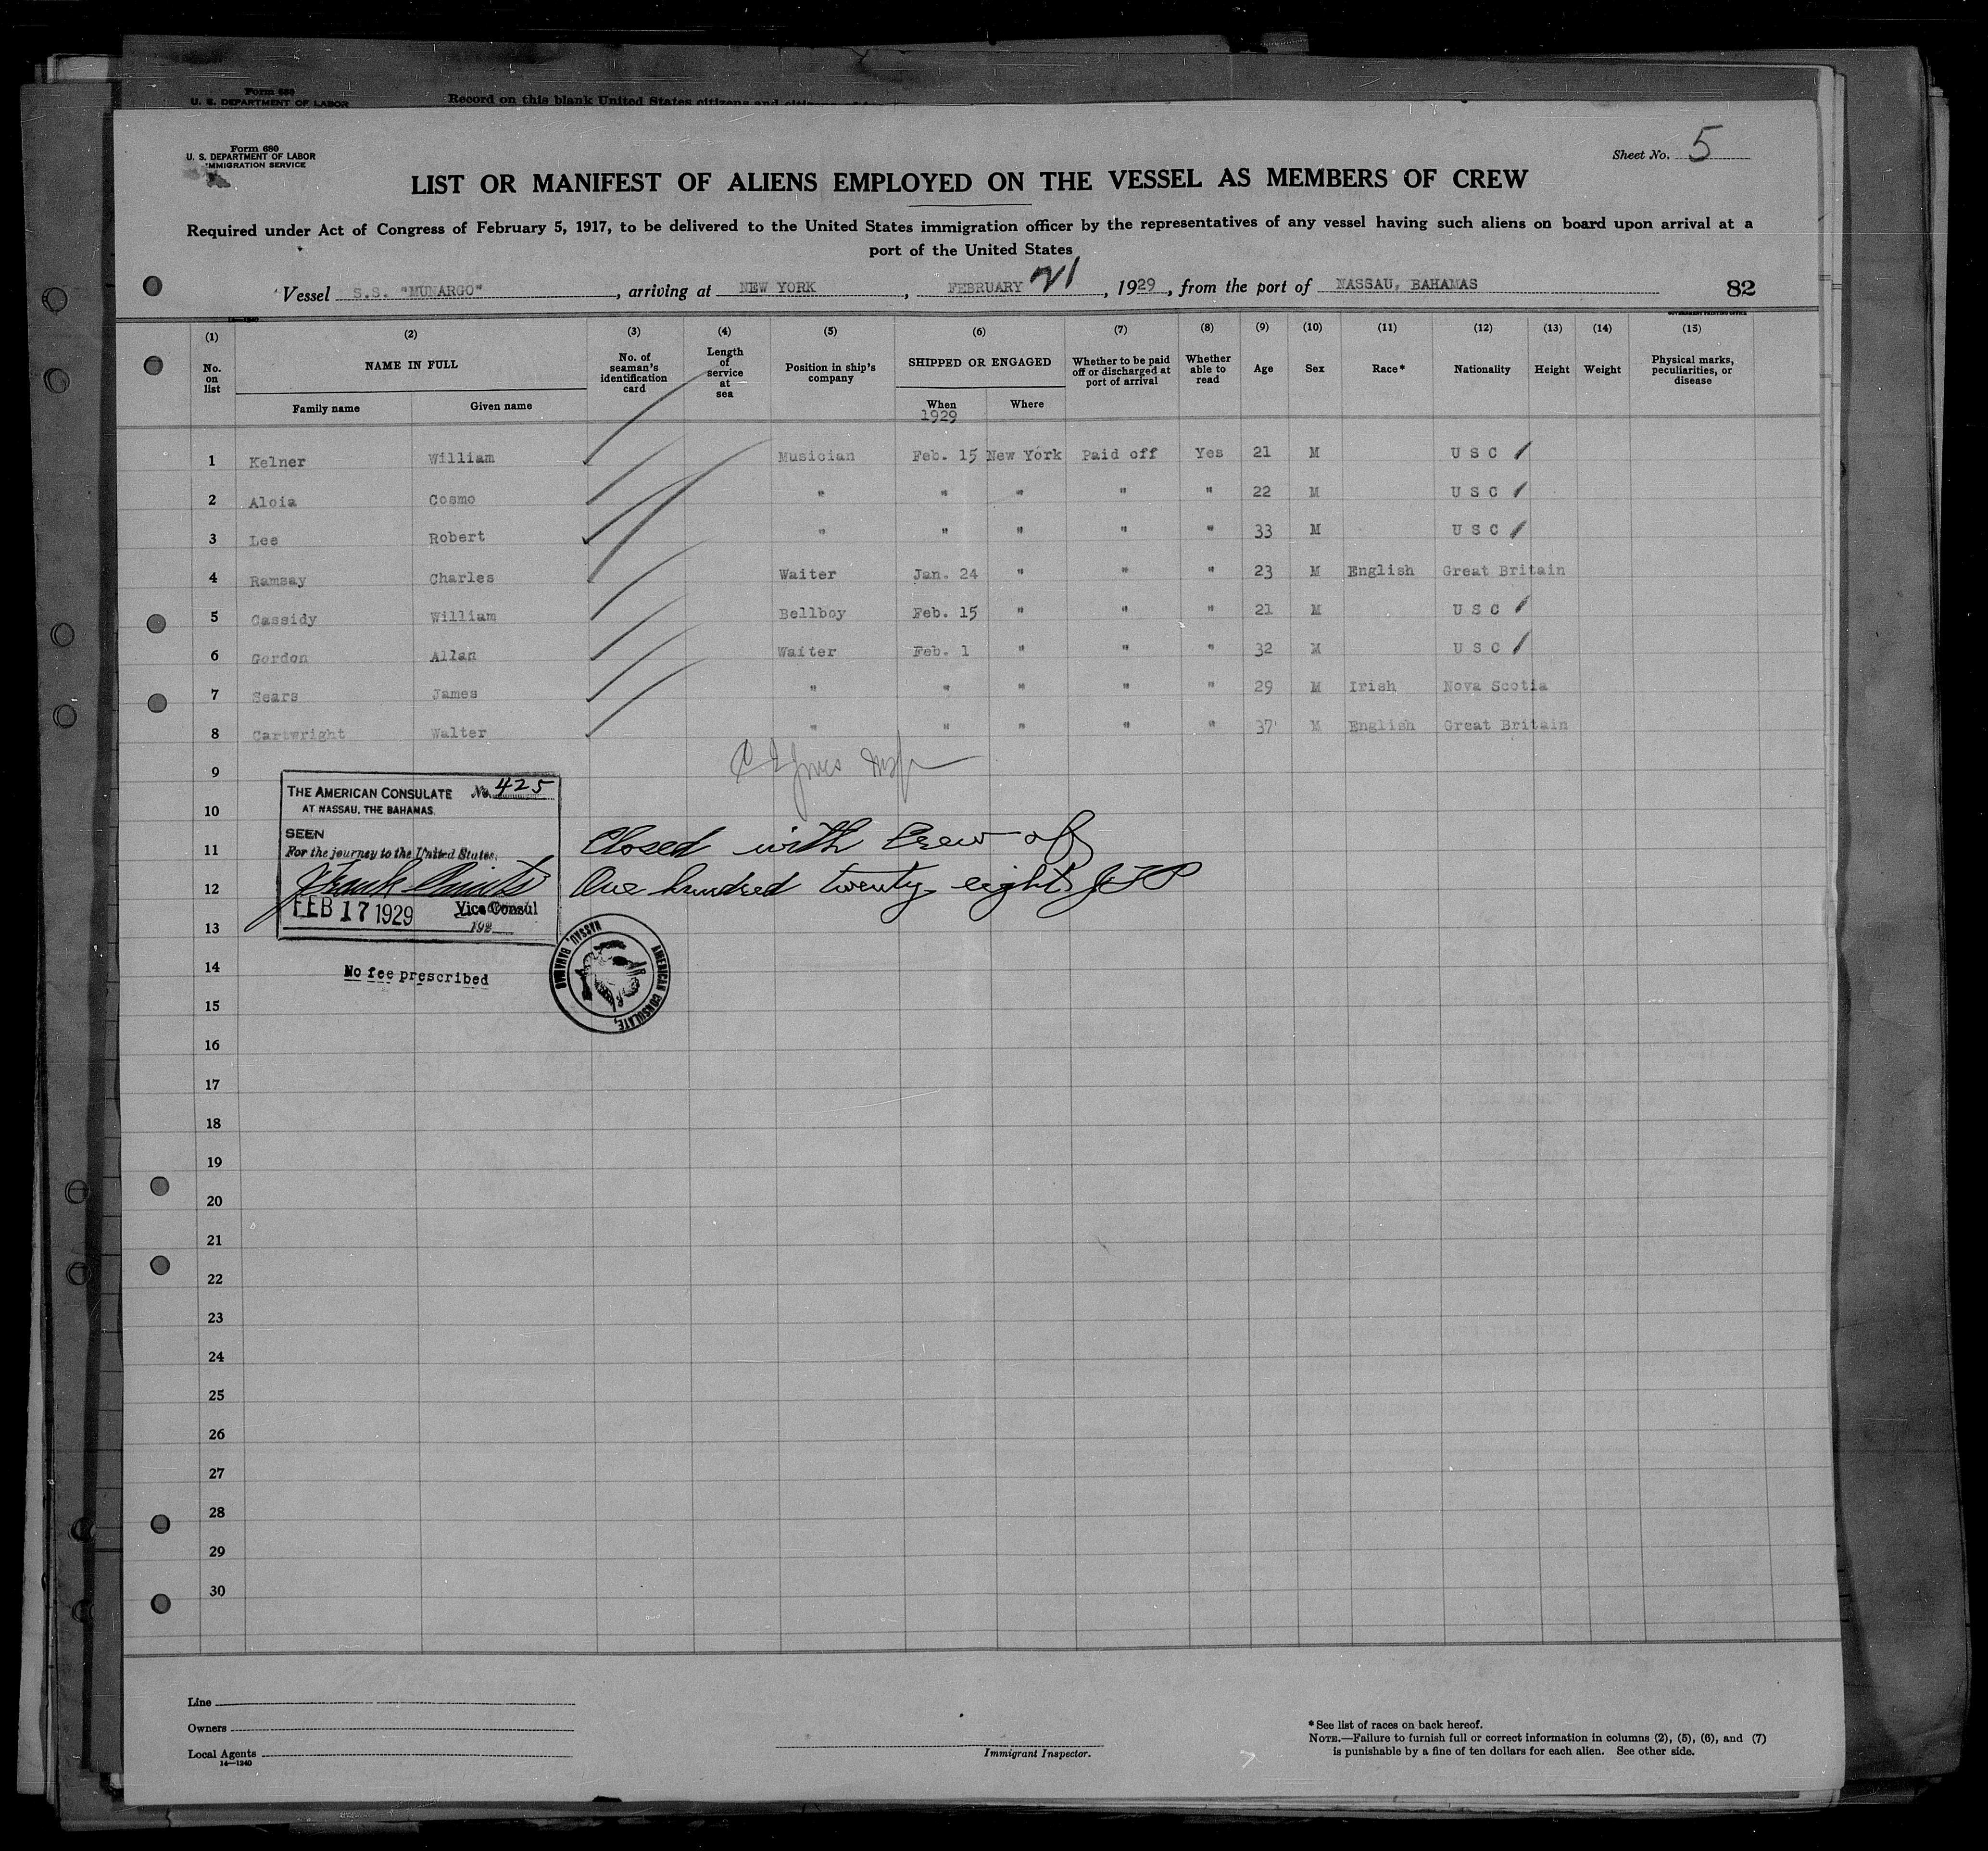 Form 680
U. S. DEPARTMENT OF LABOR
Record on this blank United States citizens and citizens of
Form 680
U. S. DEPARTMENT OF LABOR
IMMIGRATION SERVICE
Sheet No. 5
LIST OR MANIFEST OF ALIENS EMPLOYED ON THE VESSEL AS MEMBERS OF CREW
Required under Act of Congress of February 5, 1917, to be delivered to the United States immigration officer by the representatives of any vessel having such aliens on board upon arrival at a
port of the United States
Vessel S.S. "MUNARGO", arriving at NEW YORK, FEBRUARY 21, 1929, from the port of NASSAU, BAHAMAS 82
GOVERNMENT PRINTING OFFICE
(1) (2) (3) (4) (5) (6) (7) (8) (9) (10) (11) (12) (13) (14) (15)
No. on list NAME IN FULL No. of seaman's identification card Length of service at sea Position in ship's company SHIPPED OR ENGAGED Whether to be paid off or discharged at port of arrival Whether able to read Age Sex Race* Nationality Height Weight Physical marks, peculiarities, or disease
Family name Given name When Where
1929
1 Kelner William Musician Feb. 15 New York Paid off Yes 21 M U S C
2 Aloia Cosmo " " " " " 22 M U S C
3 Lee Robert " " " " " 33 M U S C
4 Ramsay Charles Waiter Jan. 24 " " " 23 M English Great Britain
5 Cassidy William Bellboy Feb. 15 " " " 21 M U S C
6 Gordon Allan Waiter Feb. 1 " " " 32 M U S C
7 Sears James " " " " " 29 M Irish Nova Scotia
8 Cartwright Walter " " " " " 37 M English Great Britain
9
THE AMERICAN CONSULATE No. 425
AT NASSAU, THE BAHAMAS.
10
SEEN
For the journey to the United States.
11 Closed with Crew of
12 One hundred twenty eight JFP
FEB 17 1929 Vice Consul
192
13
NASSAU, BAHAMAS AMERICAN CONSULATE,
14 No fee prescribed
15
16
17
18
19
20
21
22
23
24
25
26
27
28
29
30
Line
Owners
Local Agents
14—1240
Immigrant Inspector.
*See list of races on back hereof.
NOTE.—Failure to furnish full or correct information in columns (2), (5), (6), and (7)
is punishable by a fine of ten dollars for each alien. See other side.